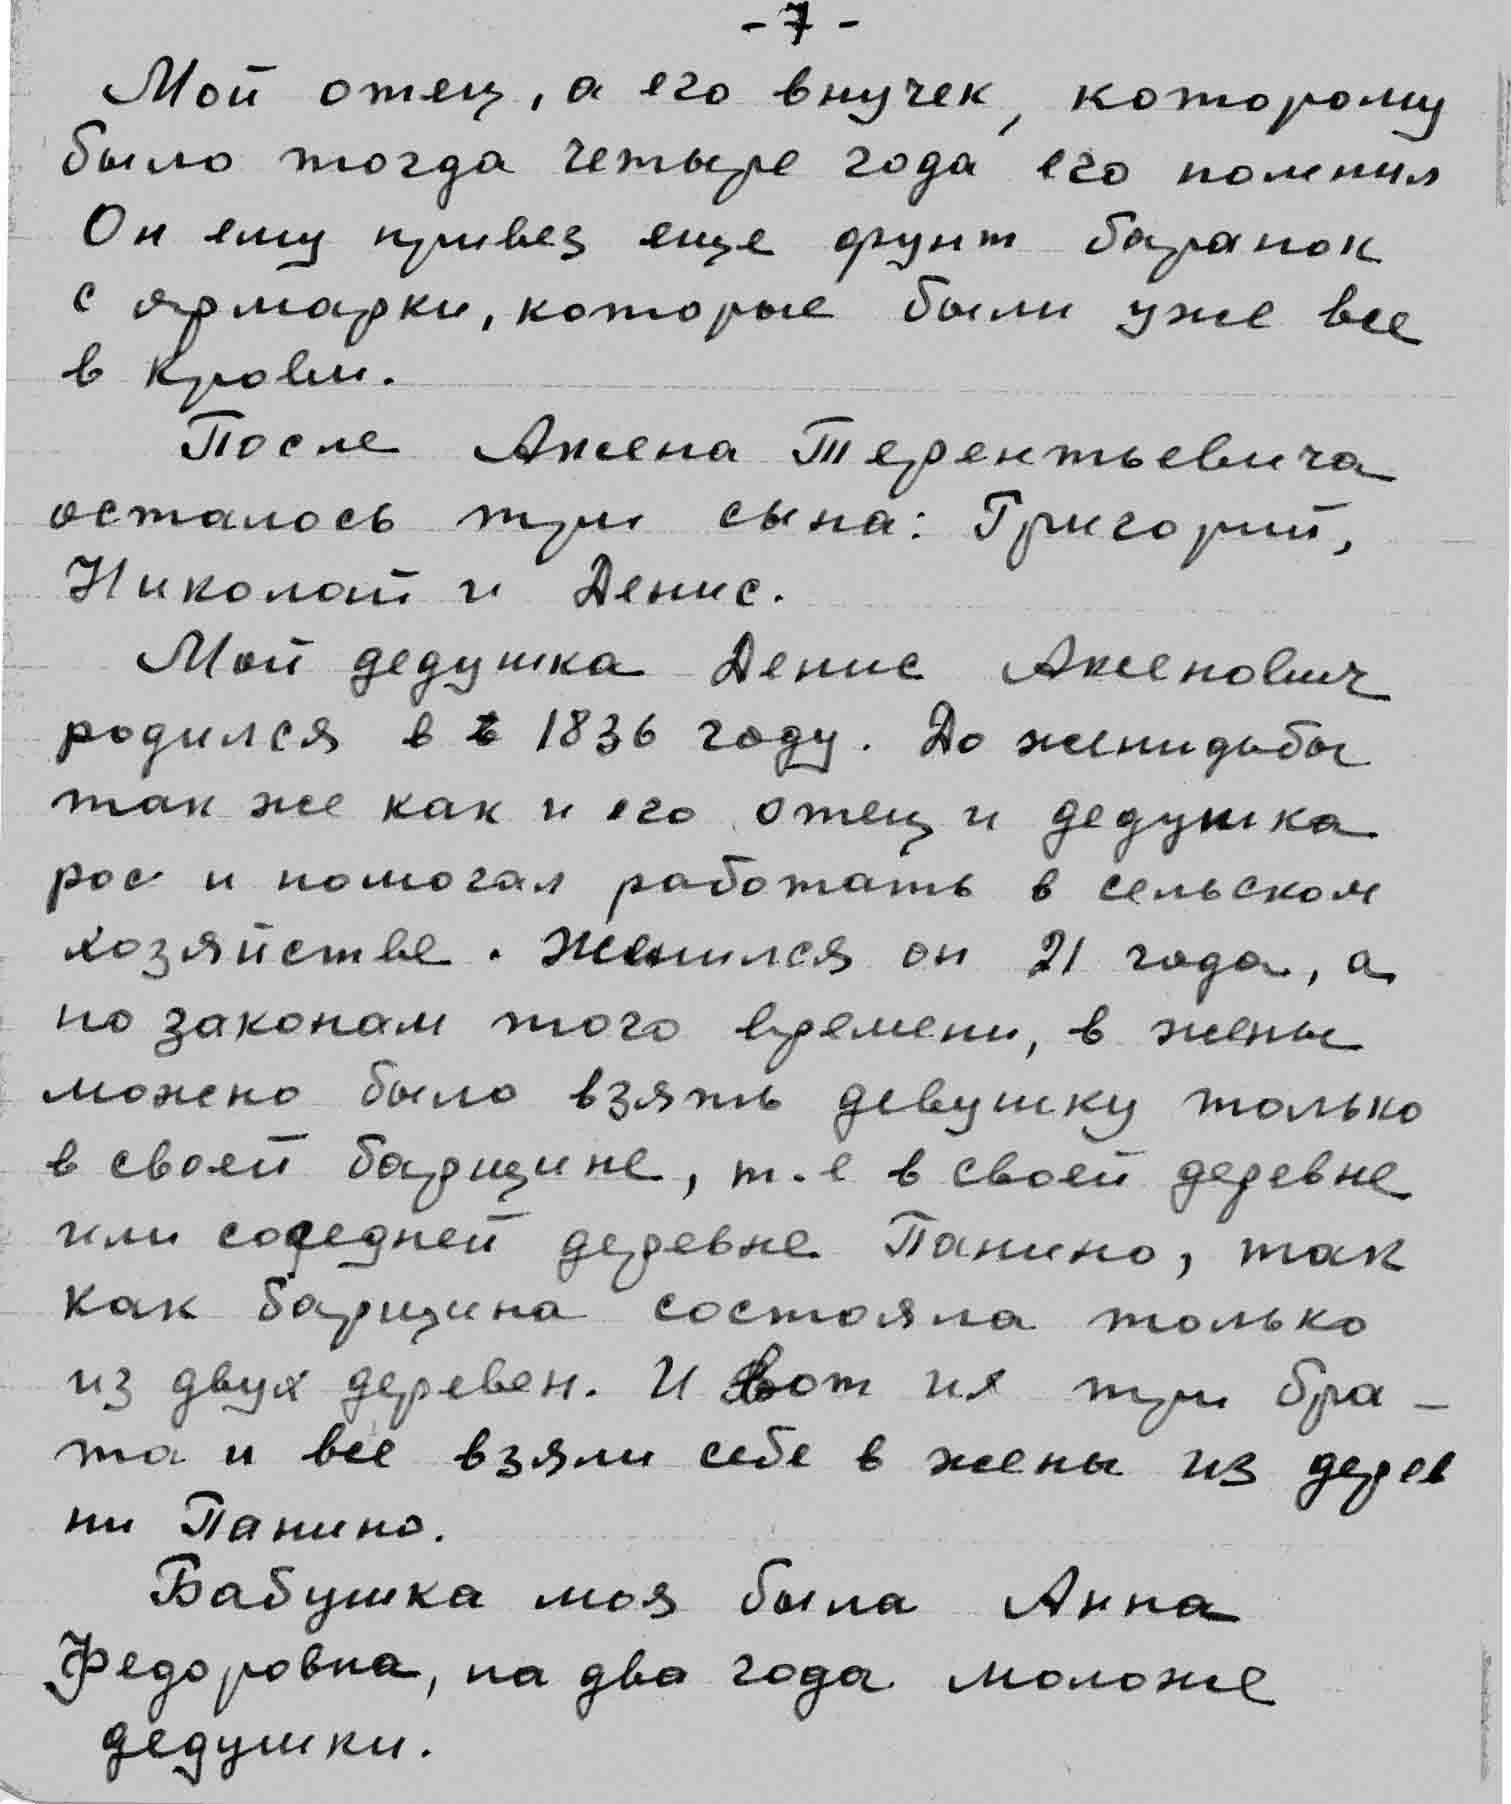 - 7 -
Мой отец, а его внучек, которому
было тогда четыре года его помнил
Он ему привез еще фунт баранок
с ярмарки, которые были уже все
в крови.
После Аксена Терентьевича
осталось три сына: Григорий,
Николай и Денис.
Мой дедушка Денис Аксенович
родился в в 1836 году. До женидьбы
так же как и его отец и дедушка
рос и помогал работать в сельском
хозяйстве. Женился он 21 года, а
по законам того времени, в жены
можно было взять девушку только
в своей барщине, т.е в своей деревне
или соседней деревне Панино, так
как барщина состояла только
из двух деревен. И вот их три бра-
та и все взяли себе в жены из дерев
ни Панино.
Бабушка моя была Анна
Федоровна, на два года моложе
дедушки.